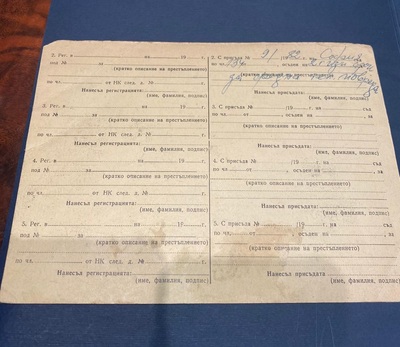 2. Рег. в на 19 г.
под № за
(кратко описание на престъплението)
по чл. от НК след. д. №
Нанесъл регистрацията:
(име, фамилия, подпис)
3. Рег. в на 19 г.
под № за
(кратко описание на престъплението)
по чл. от НК след. д. №
Нанесъл регистрацията:
(име, фамилия, подпис)
4. Рег. в на 19 г.
под № за
(кратко описание на престъплението)
по чл. от НК след. д. №
Нанесъл регистрацията:
(име, фамилия, подпис)
5. Рег. в на 19 г.
под № за
(кратко описание на престъплението)
по чл. от НК след. д. №
Нанесъл регистрацията:
(име, фамилия, подпис)
2. С присъда № 91
по чл. осъден
(кратко описание на престъплението)
Нанесъл присъдата:
(име, фамилия, подпис)
3. С присъда № /19 г. на съд
по чл. осъден на за
(кратко описание на престъплението)
Нанесъл присъдата:
(име, фамилия, подпис)
4. С присъда № /19 г. на съд
по чл. осъден на за
(кратко описание на престъплението)
Нанесъл присъдата:
(име, фамилия, подпис)
5. С присъда № г. на съд
по чл. осъден на за
(кратко описание на престъплението)
Нанесъл присъдата
(име, фамилия, подпис)